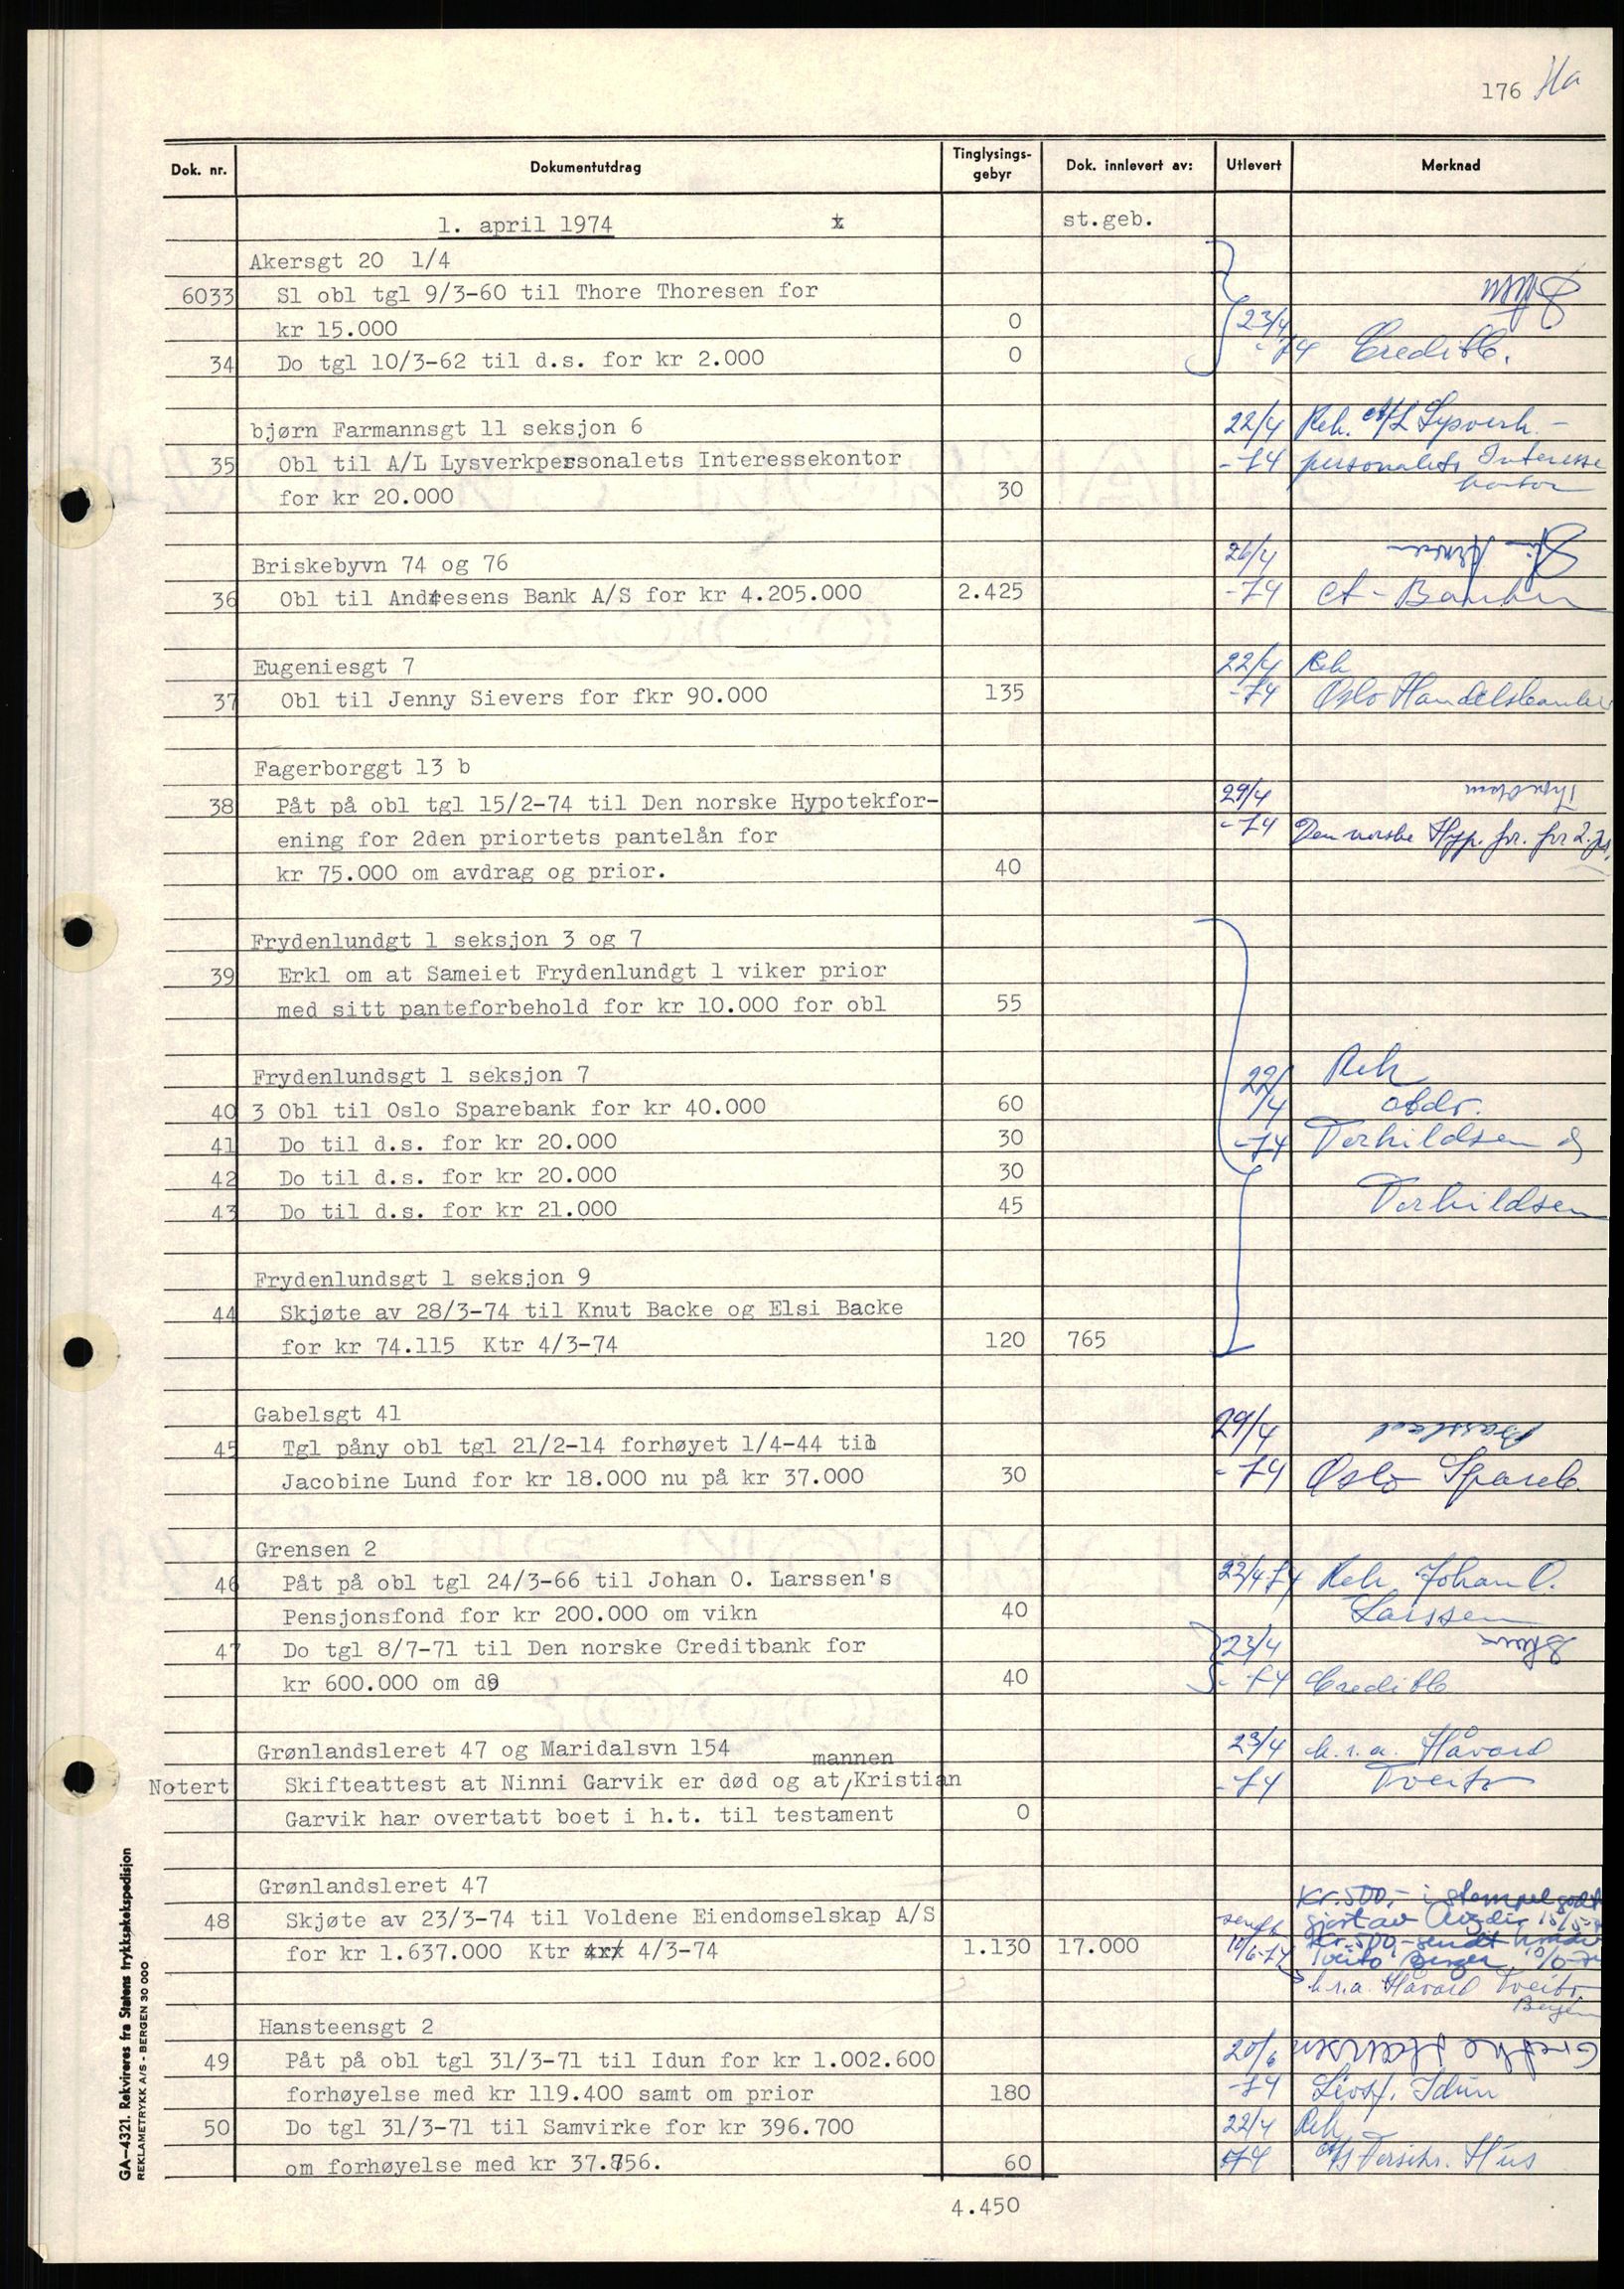 176 Ha
Dok. nr. Dokumentutdrag Tinglysings-gebyr Dok. innlevert av: Utlevert Merknad
1. april 1974 st.geb.
Akersgt 20 1/4
6033 Sl obl tgl 9/3-60 til Thore Thoresen for
kr 15.000 0 23/4
34 Do tgl 10/3-62 til d.s. for kr 2.000 0 -74 Creditb.
bjørn Farmannsgt 11 seksjon 6 22/4 Rek. A/L Lysverk.-
35 Obl til A/L Lysverkpersonalets Interessekontor -74 personalets Interesse
for kr 20.000 30 kontor
Briskebyvn 74 og 76 26/4
36 Obl til Andresens Bank A/S for kr 4.205.000 2.425 -74 A-Banken
Eugeniesgt 7 22/4 Rek
37 Obl til Jenny Sievers for fkr 90.000 135 -74 Oslo Handelsbank
Fagerborggt 13 b
38 Påt på obl tgl 15/2-74 til Den norske Hypotekfor- 29/4
ening for 2den priortets pantelån for -74 Den norske Hyp. for. for 2. pr.
kr 75.000 om avdrag og prior. 40
Frydenlundgt 1 seksjon 3 og 7
39 Erkl om at Sameiet Frydenlundgt 1 viker prior
med sitt panteforbehold for kr 10.000 for obl 55
Frydenlundsgt 1 seksjon 7 22/4 Rek
40 3 Obl til Oslo Sparebank for kr 40.000 60 abdr.
41 Do til d.s. for kr 20.000 30 -74 Torkildsen &
42 Do til d.s. for kr 20.000 30
43 Do til d.s. for kr 21.000 45 Torkildsen
Frydenlundsgt 1 seksjon 9
44 Skjøte av 28/3-74 til Knut Backe og Elsi Backe
for kr 74.115 Ktr 4/3-74 120 765
Gabelsgt 41 29/4
45 Tgl påny obl tgl 21/2-14 forhøyet 1/4-44 til
Jacobine Lund for kr 18.000 nu på kr 37.000 30 -74 Oslo Spareb.
Grensen 2
46 Påt på obl tgl 24/3-66 til Johan O. Larssen's 22/4-74 Rek Johan O.
Pensjonsfond for kr 200.000 om vikn 40 Larssen
47 Do tgl 8/7-71 til Den norske Creditbank for 23/4
kr 600.000 om do 40 -74 Creditb
Grønlandsleret 47 og Maridalsvn 154 23/4 h.r.a. Håvard
mannen
Notert Skifteattest at Ninni Garvik er død og at Kristian -74 Tveito
Garvik har overtatt boet i h.t. til testament 0
Grønlandsleret 47 Kr. 500,- i stempel godt
48 Skjøte av 23/3-74 til Voldene Eiendomselskap A/S sendt gjort av
for kr 1.637.000 Ktr 4/3-74 1.130 17.000 10/6-74 Kr. 500,- sendt
Tveito Bergen 10/6-74
h.r.a. Håvard Tveito
Bergen
Hansteensgt 2
49 Påt på obl tgl 31/3-71 til Idun for kr 1.002.600 20/6 Grethe Hansen
forhøyelse med kr 119.400 samt om prior 180 -74 Livsf. Idun
50 Do tgl 31/3-71 til Samvirke for kr 396.700 22/4 Rek
om forhøyelse med kr 37.856. 60 -74 A/S Forsikr. Hus
4.450
GA-4321. Rekvireres fra Statens trykksakekspedisjon
REKLAMETRYKK A/S - BERGEN 30 000